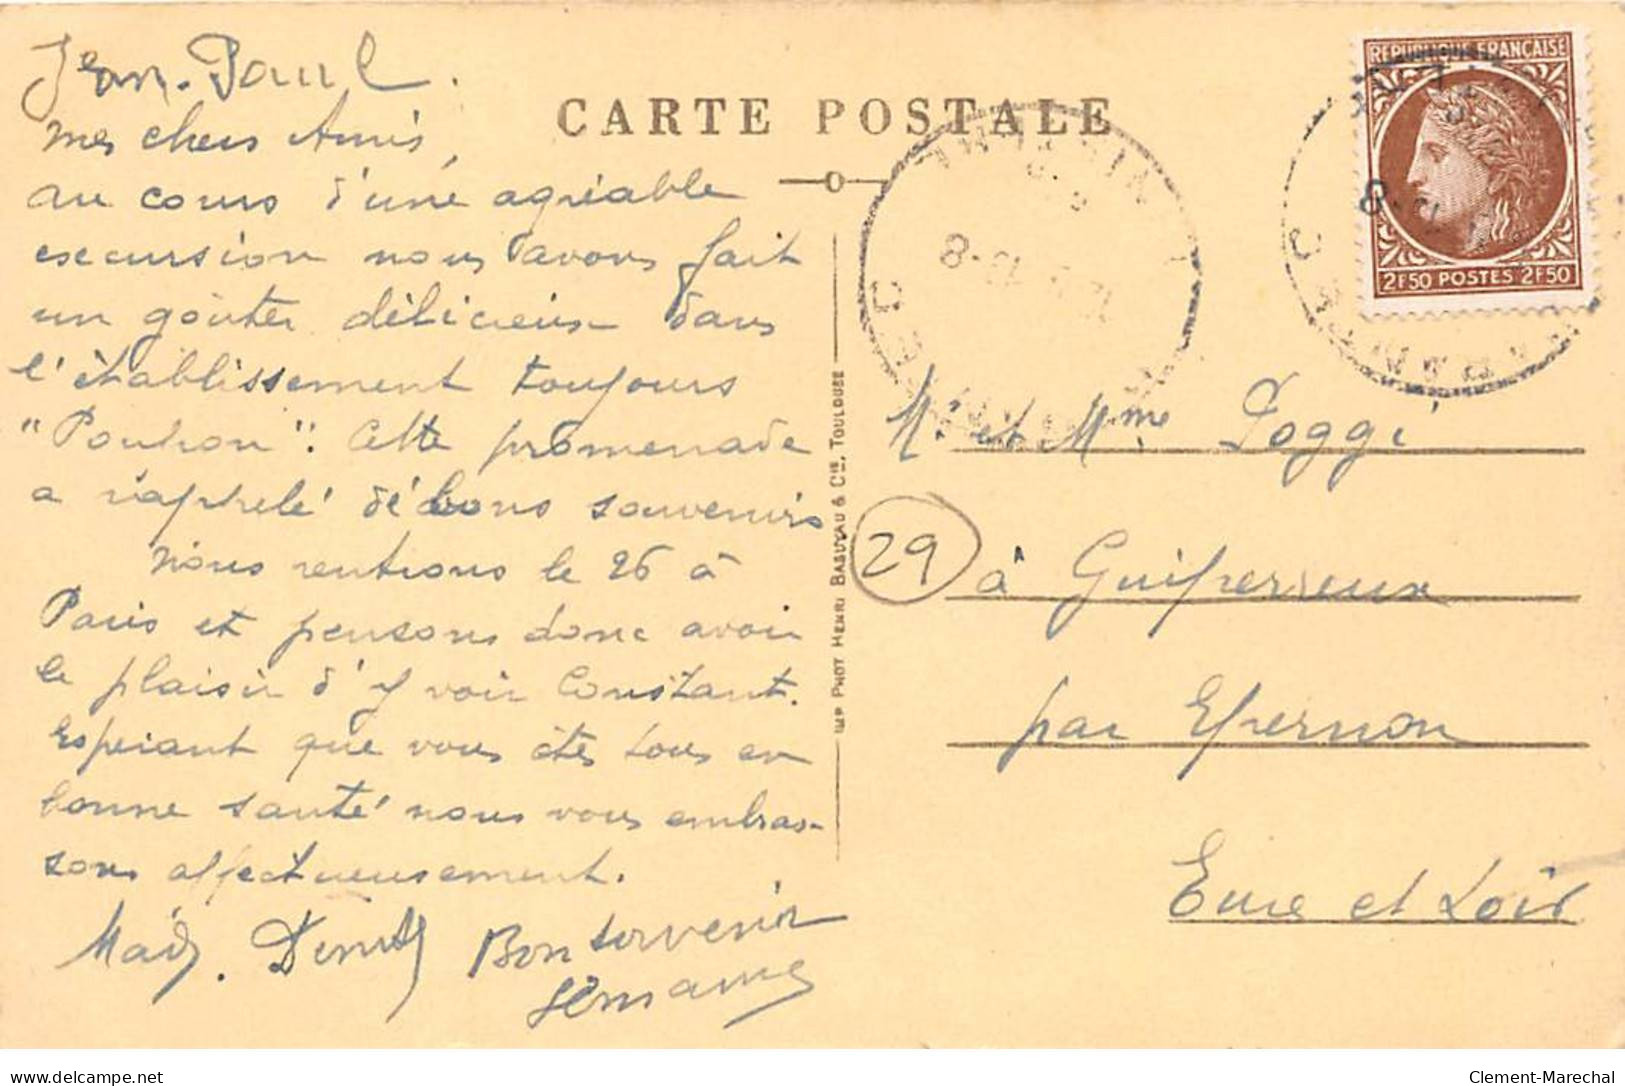 Jean-Paul.
mes chers Amis,
au cours d'une agréable
excursion nous avons fait
un goûter délicieux dans
l'établissement toujours
"Pouhon". Cette promenade
a rappelé de bons souvenirs
Nous rentrons le 26 à
Paris et pensons donc avoir
le plaisir d'y voir Constant.
Espérant que vous êtes tous en
bonne santé nous vous embras-
sons affectueusement.
Bon souvenir
CARTE POSTALE
IMP PHOT HENRI BASUYAU & Cie, TOULOUSE
REPUBLIQUE FRANÇAISE
2F50 POSTES 2F50
M. et Mme Poggi
29
à Guiperreux
par Epernon
Eure et Loir
© delcampe.net
Clement-Marechal